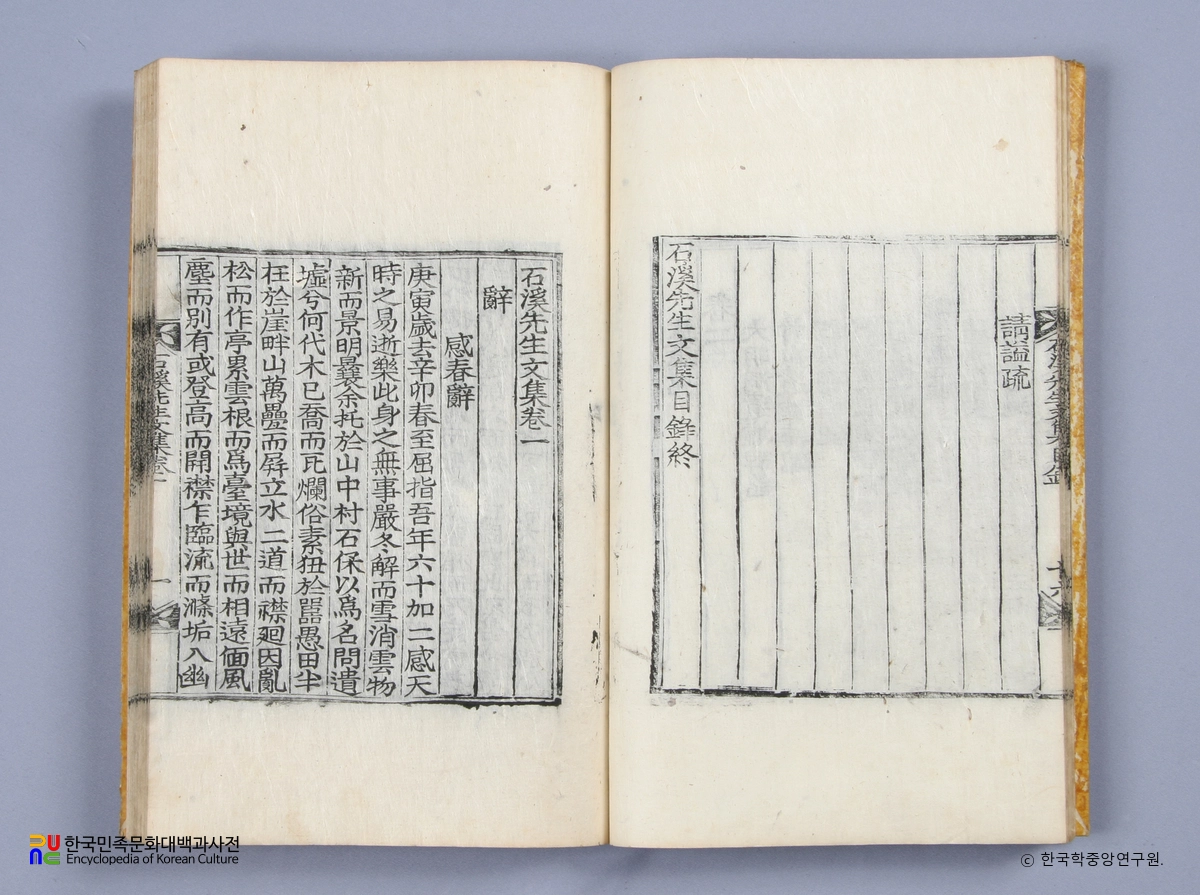 請謚疏
石溪先生文集目錄終
石溪先生文集目錄
十六
石溪先生文集卷一
辭
感春辭
庚寅歲去辛卯春至屈指吾年六十加二感天
時之易逝樂此身之無事嚴冬解而雪消雲物
新而景明曩余托於山中村石保以爲名問遺
墟兮何代木已喬而瓦爛俗素狃於嚚愚田半
枉於崖畔山萬疊而屛立水二道而襟廻因亂
松而作亭累雲根而爲臺境與世而相遠偭風
塵而別有或登高而開襟乍臨流而滌垢入幽
石溪先生文集卷一
一
한국민족문화대백과사전
Encyclopedia of Korean Culture
ⓒ 한국학중앙연구원.